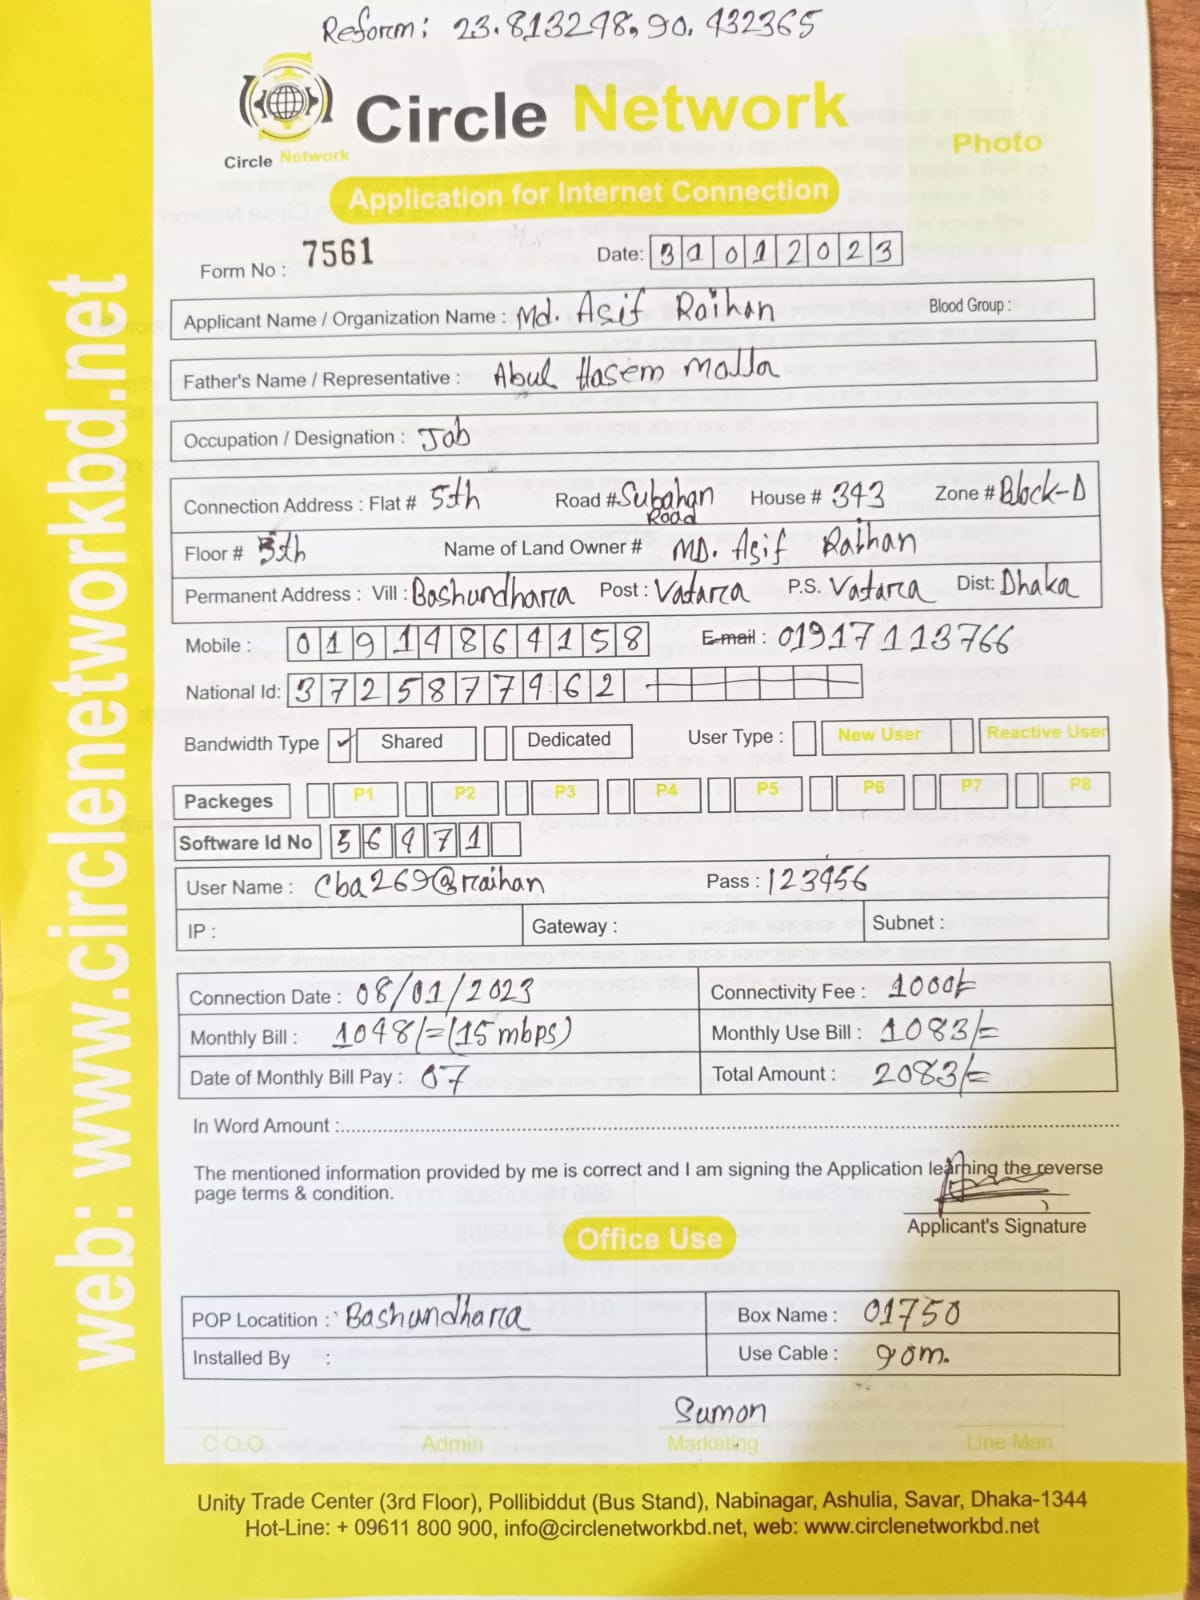 Reform: 23.813248, 90.432365
Circle Network
Circle Network
Photo
Application for Internet Connection
Form No : 7561 Date: 31012023
Applicant Name / Organization Name : Md. Asif Raihan Blood Group :
Father's Name / Representative : Abul Hasem Molla
Occupation / Designation : Job
Connection Address : Flat # 5th Road # Subahan Road House # 343 Zone # Block-D
Floor # 5th Name of Land Owner # MD. Asif Raihan
Permanent Address : Vill : Bashundhara Post : Vatara P.S. Vatara Dist: Dhaka
Mobile : 01914864158 E-mail : 01917113766
National Id: 3725877462
Bandwidth Type ✓ Shared Dedicated User Type : New User Reactive User
Packeges P1 P2 P3 P4 P5 P6 P7 P8
Software Id No 56471
User Name : Cba269@raihan Pass : 123456
IP : Gateway : Subnet :
Connection Date : 08/01/2023 Connectivity Fee : 1000/=
Monthly Bill : 1048/=(15 mbps) Monthly Use Bill : 1083/=
Date of Monthly Bill Pay : 07 Total Amount : 2083/=
In Word Amount :
The mentioned information provided by me is correct and I am signing the Application learning the reverse
page terms & condition.
Applicant's Signature
Office Use
POP Locatition : Bashundhara Box Name : 01750
Installed By : Use Cable : 90m.
Sumon
C.O.O Admin Marketing Line Man
Unity Trade Center (3rd Floor), Pollibiddut (Bus Stand), Nabinagar, Ashulia, Savar, Dhaka-1344
Hot-Line: + 09611 800 900, info@circlenetworkbd.net, web: www.circlenetworkbd.net
web: www.circlenetworkbd.net